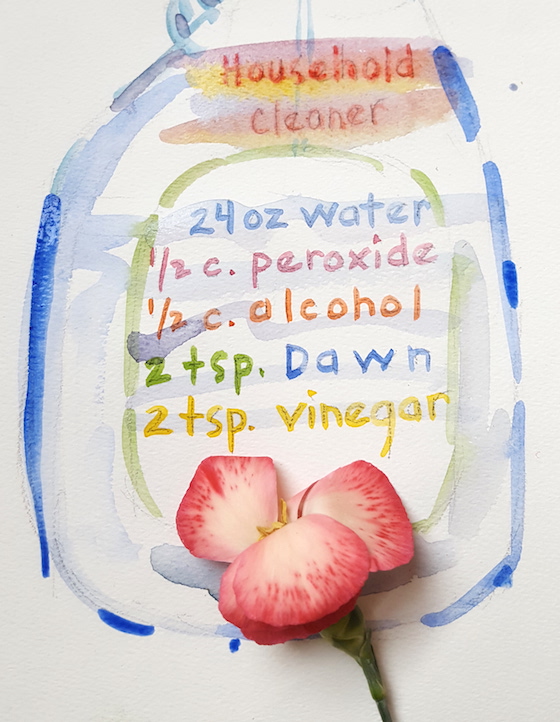 Household
cleaner
24oz water
1/2 c. peroxide
1/2 c. alcohol
2 tsp. Dawn
2 tsp. vinegar